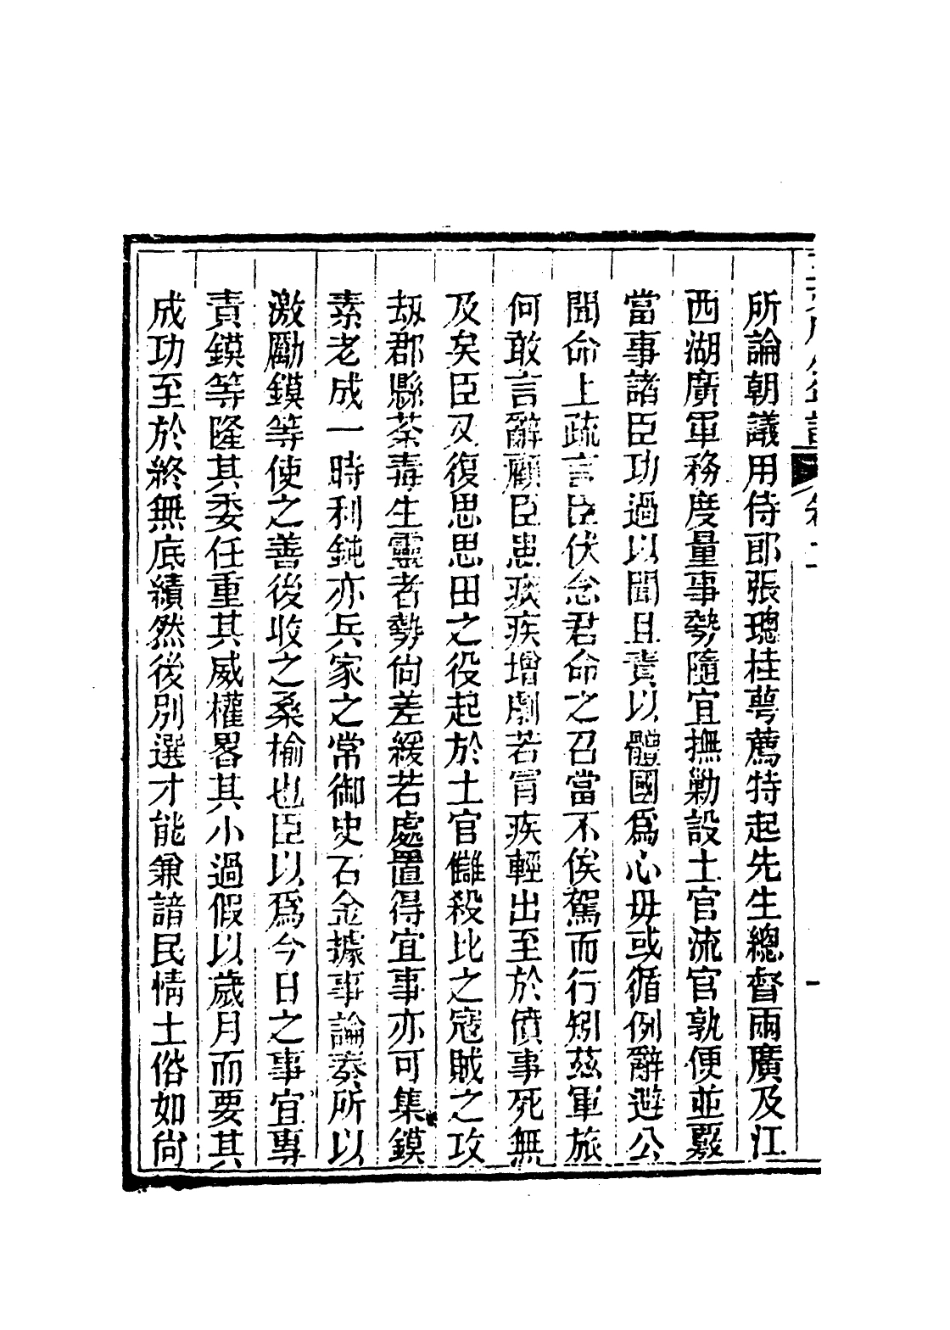 所論朝議用侍郎張璁桂萼薦特起先生總督兩廣及江
西湖廣軍務度量事勢隨宜撫勦設土官流官孰便並覈
當事諸臣功過以聞且責以體國爲心毋或循例辭避公
聞命上疏言臣伏念君命之召當不俟駕而行矧茲軍旅
何敢言辭顧臣患痰疾增劇若冐疾輕出至於僨事死無
及矣臣又復思思田之役起於土官讎殺比之寇賊之攻
刼郡縣荼毒生靈者勢尙差緩若處置得宜事亦可集鏌
素老成一時利鈍亦兵家之常御史石金據事論奏所以
激勵鏌等使之善後收之桑榆也臣以爲今日之事宜專
責鏌等隆其委任重其威權畧其小過假以歲月而要其
成功至於終無底績然後別選才能兼諳民情土俗如尙